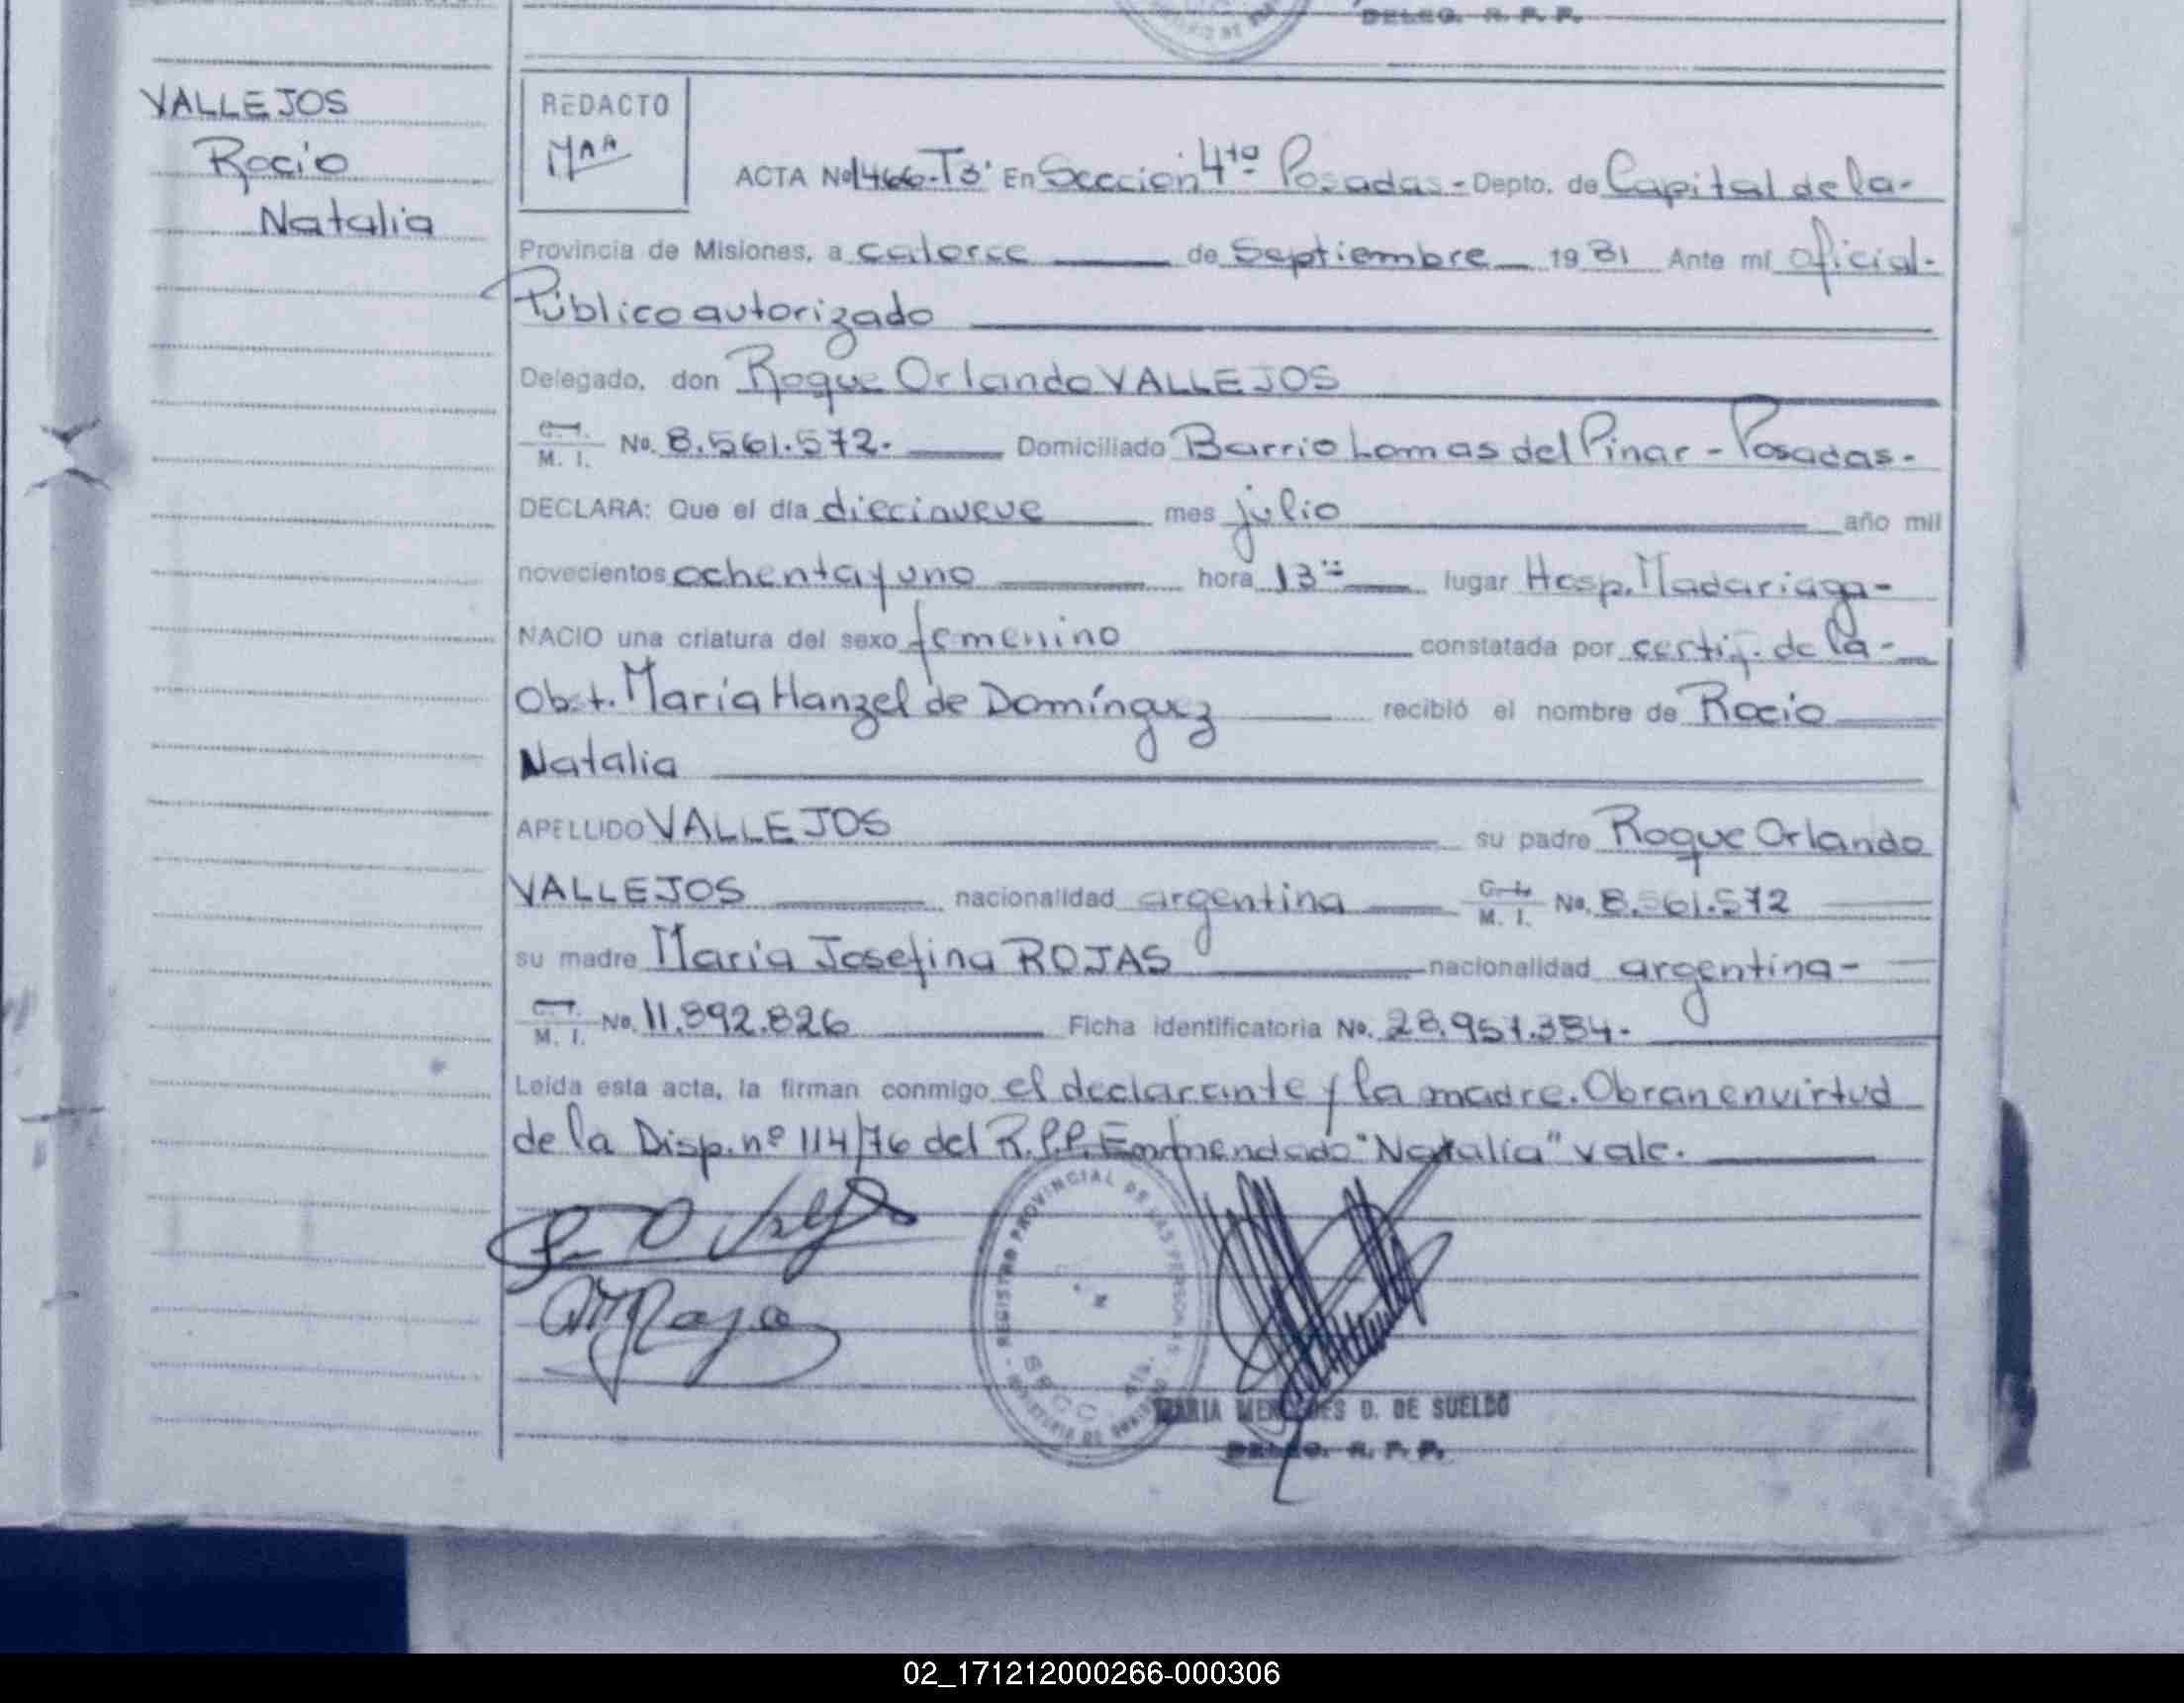 DELEG. R. P. P.
VALLEJOS
Rocio
Natalia
REDACTO
ACTA No 1466-T3' En Sección 4ta Posadas - Depto. de Capital de la-
Provincia de Misiones, a catorce de Septiembre 1981 Ante mí oficial-
Público autorizado
Delegado, don Roque Orlando VALLEJOS
C. I. M. I. No. 8.561.572. Domiciliado Barrio Lomas del Pinar - Posadas.-
DECLARA: Que el día diecinueve mes julio año mil
novecientos ochenta y uno hora 13 lugar Hosp. Madariaga-
NACIO una criatura del sexo femenino constatada por certif. de la-
Obst. María Hanzel de Domínguez recibió el nombre de Rocio
Natalia
APELLIDO VALLEJOS su padre Roque Orlando
VALLEJOS nacionalidad argentina C. I. M. I. No. 8.561.572
su madre María Josefina ROJAS nacionalidad argentina-
C. I. M. I. No. 11.892.826 Ficha identificatoria No. 28.951.384.
Leída esta acta, la firman conmigo el declarante y la madre. Obran en virtud
de la Disp. nº 114/76 del R.P.P. Emmendado "Natalia" vale.
REGISTRO PROVINCIAL DE LAS PERSONAS
SECC. 4TA.
MARIA MERCEDES D. DE SUELDO
DELEG. R. P. P.
02_171212000266-000306